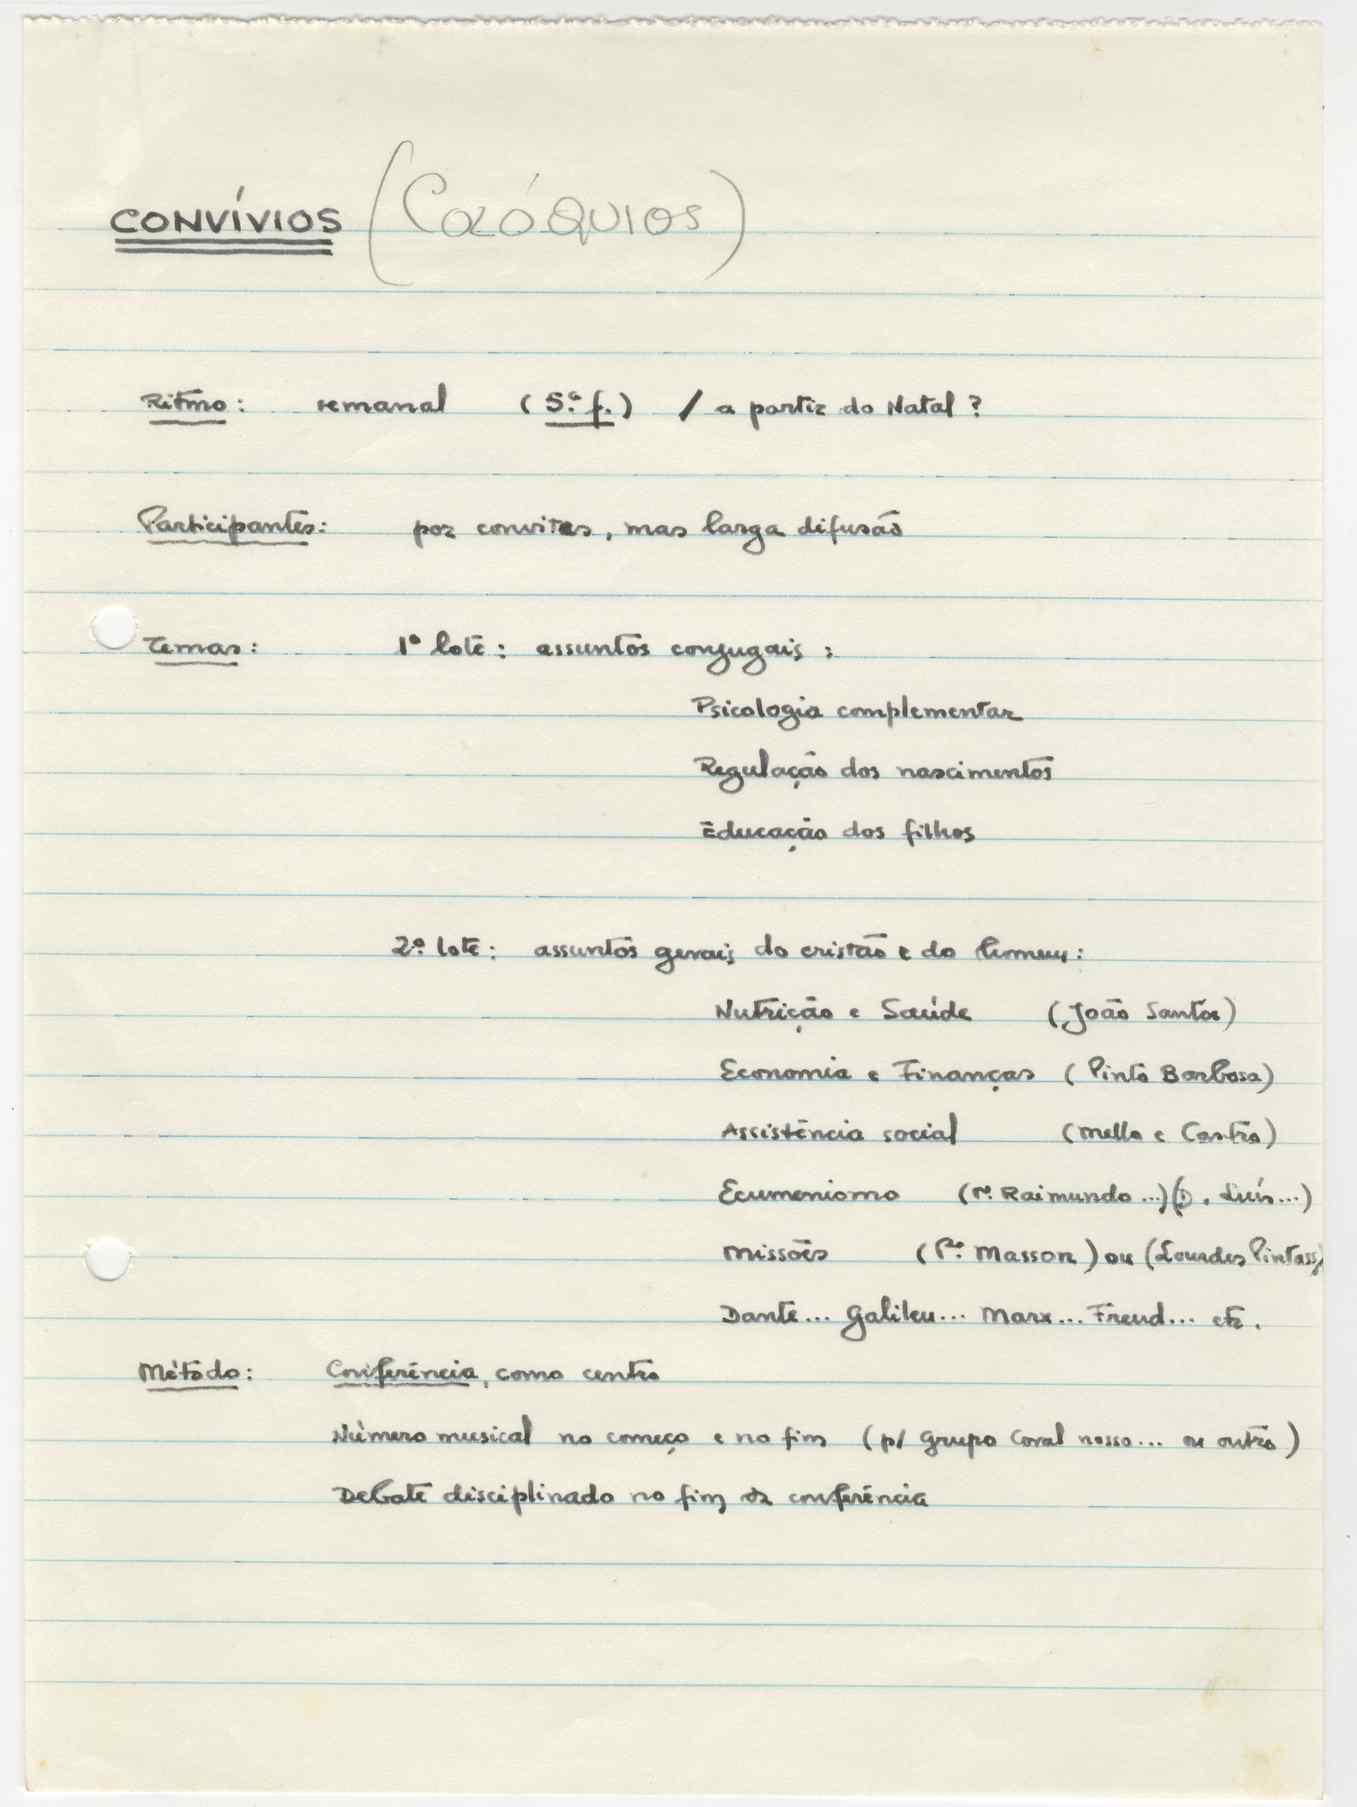 CONVÍVIOS (COLÓQUIOS)
Ritmo: semanal (5.ª f.) / a partir do Natal?
Participantes: por convites, mas larga difusão
Temas: 1º lote: assuntos conjugais:
Psicologia complementar
Regulação dos nascimentos
Educação dos filhos
2.º lote: assuntos gerais do cristão e do homem:
Nutrição e Saúde (João Santos)
Economia e Finanças (Pinto Barbosa)
Assistência social (Mello e Castro)
Ecumenismo (P. Raimundo...) (D. Luís...)
Missões (P.e Masson) ou (Lourdes Pintass)
Dante... Galileu... Marx... Freud... etc.
Método: Conferência, como centro
Número musical no começo e no fim (p/ Grupo Coral nosso... ou outro)
Debate disciplinado no fim da conferência